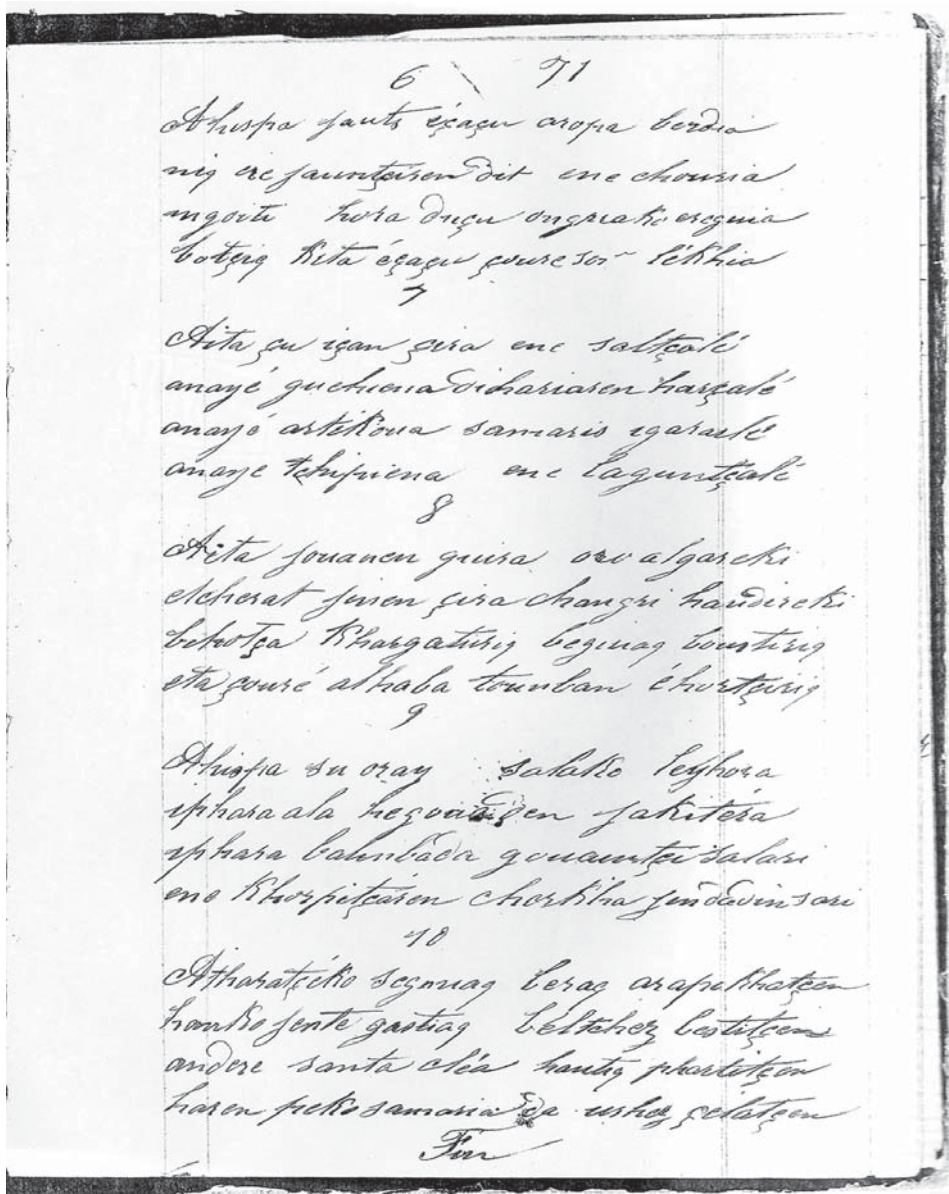 6 71
Ahispa jauts éçaçu aropa berdia
nig ere jauntçiren dit ene chouria
ingoiti hora duçu ongriako ereguia
botçig kita éçaçu çoure sor lékhia
7
Aita çu içan çira ene saltçalé
anayé guehiena dihariaren harçalé
anayé artékoua samaris igaraulé
anaye tchipiena ene laguntçalé
8
Aita jouanen guira oro algareki
etcherat jinen çira changri handireki
bihotça khargaturig beguiag boustirig
eta çouré alhaba tounban éhortçirig
9
Ahispa su oray salako leyhora
iphara ala hegoua den jakitéra
iphara balinbada gouaintçi salari
ene khorpitçaren cherkha jin dadin sari
10
Atharatçéko seguiag berac arapikhatcen
hanko jente gastiag béltchez bestitçen
andere santa cléa hantig phartitçen
haren peko samaria da urhez çélatçen
Fin